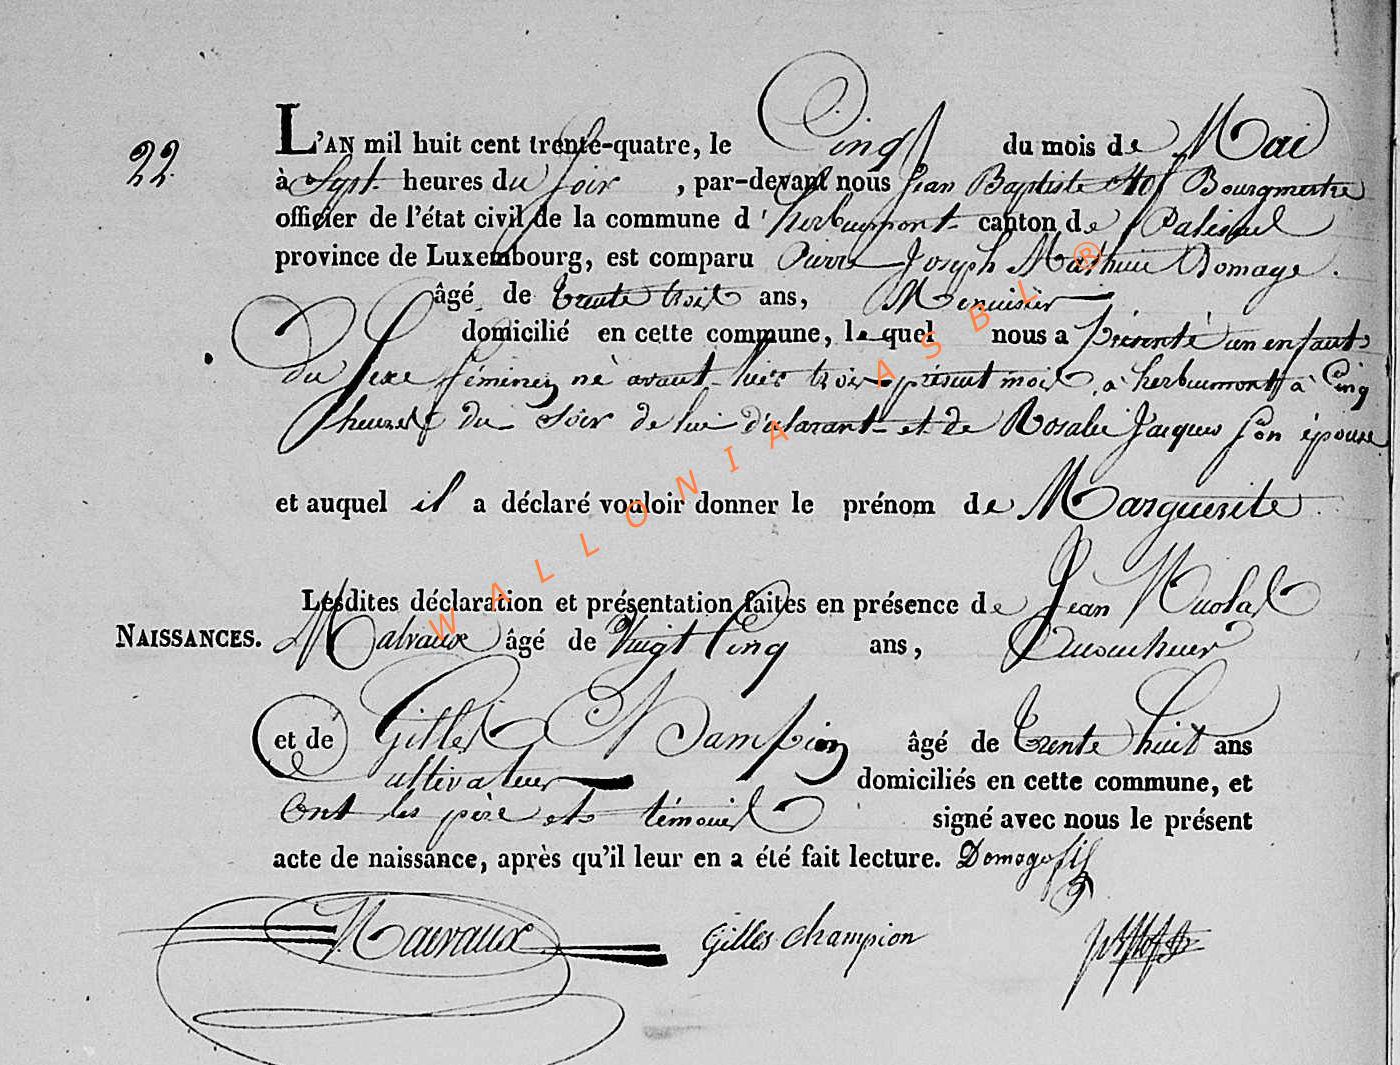 22.
L'AN mil huit cent trente-quatre, le Cinq du mois de Mai
à Sept heures du soir , par-devant nous Jean Baptiste Hof Bourgmestre
officier de l'état civil de la commune d'herbeumont canton de Paliseul
province de Luxembourg, est comparu Pierre Joseph Mathieu Domage.
âgé de trente trois ans, Menuisier
domicilié en cette commune, lequel nous a présenté un enfant
du Sexe féminin né avant-hier trois présent mois, à herbeumont à Cinq
heures du Soir de lui déclarant et de Rosalie Jacques son épouse
et auquel il a déclaré vouloir donner le prénom de Marguerite.
Lesdites déclaration et présentation faites en présence de Jean Nicolas
NAISSANCES. Malvaux âgé de Vingt Cinq ans,
et de Gilles Champion âgé de trente huit ans
Cultivateur domiciliés en cette commune, et
Ont les père et témoins signé avec nous le présent
acte de naissance, après qu'il leur en a été fait lecture. Domage fils
Gilles Champion
WALLONIA ASBL ®